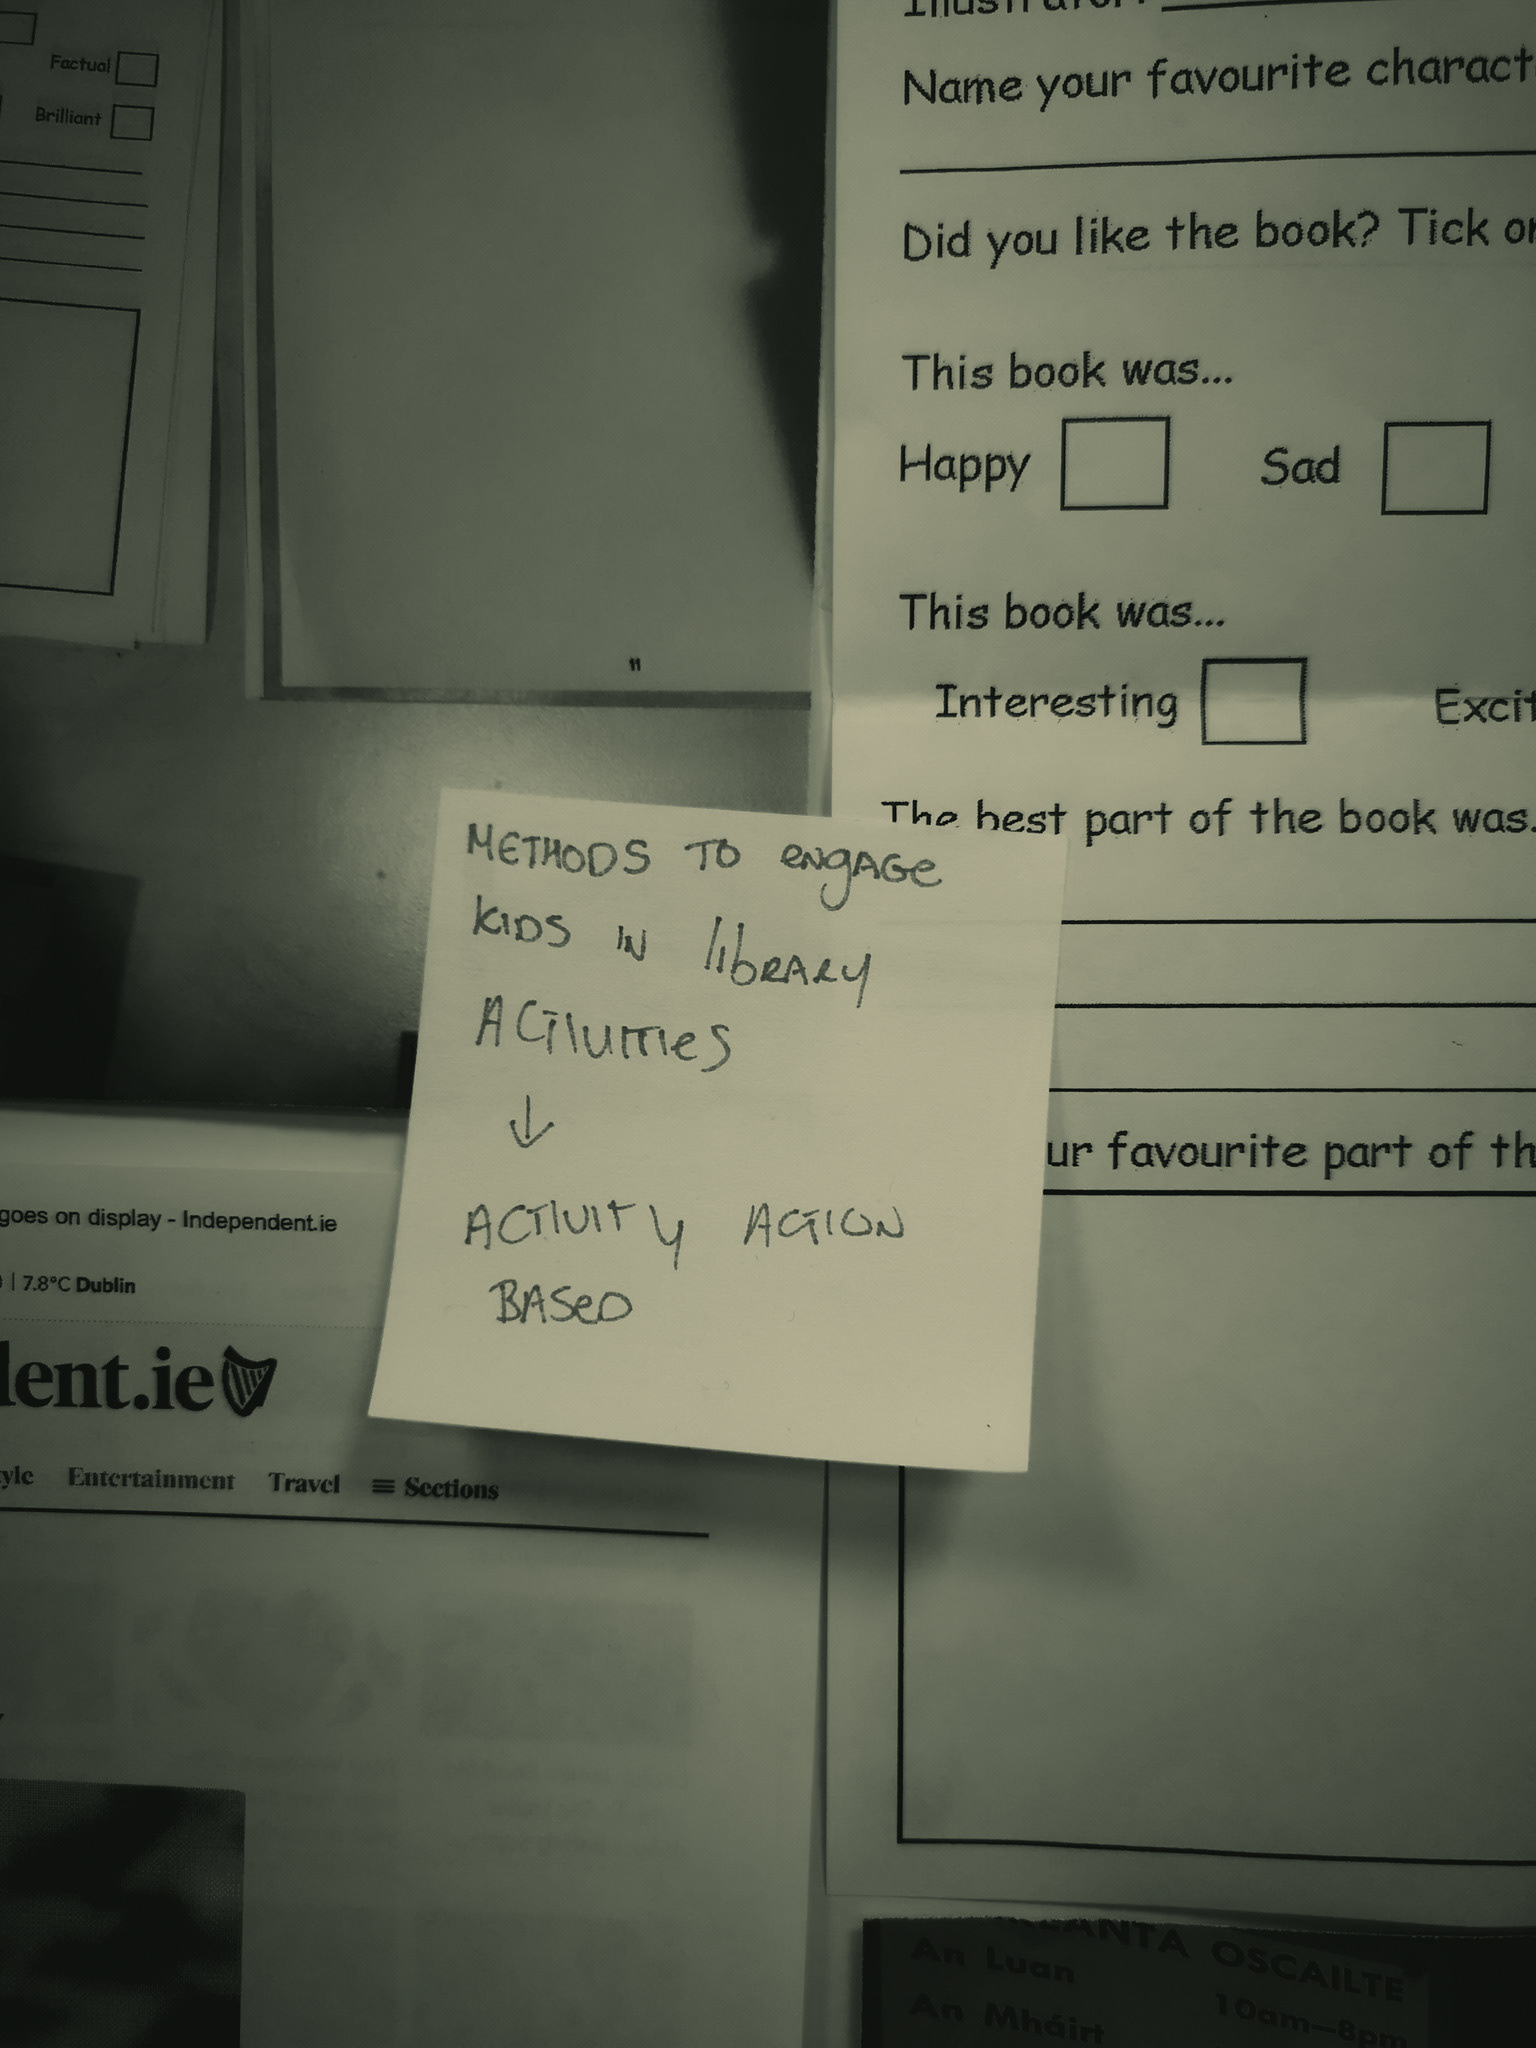 Factual
Brilliant
"
Name your favourite
Did you like the book? Tick
This book was...
Happy Sad
This book was...
Interesting
The best part of the book was.
favourite part of
METHODS TO ENGAGE
KIDS IN LIBRARY
ACTIVITIES
↓
ACTIVITY ACTION
BASED
goes on display - Independent.ie
| 7.8°C Dublin
lent.ie
Entertainment Travel ≡ Sections
OSCAILTE
An Luan
An Mháirt 10am–8pm